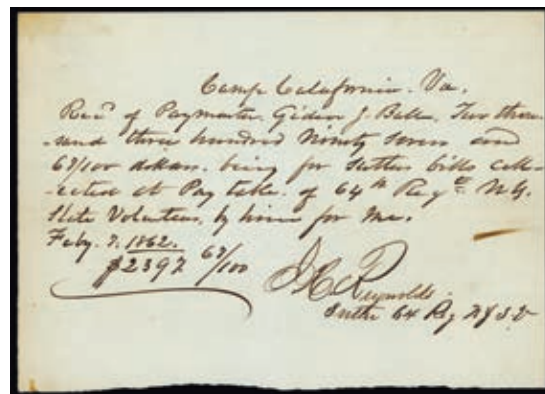 Camp California. Va.
Rec'd of Paymaster. Gideon J. Ball. Two thou-
-sand three hundred Ninety seven and
63/100 dollars. being for Sutler bills coll-
-ected at Pay table. of 64th Regt. N.Y.
State Volunteers, by him for Me.
Feby. 7. 1862.
$2397 63/100
J C Reynolds.
Sutler 64 Reg N Y S. V